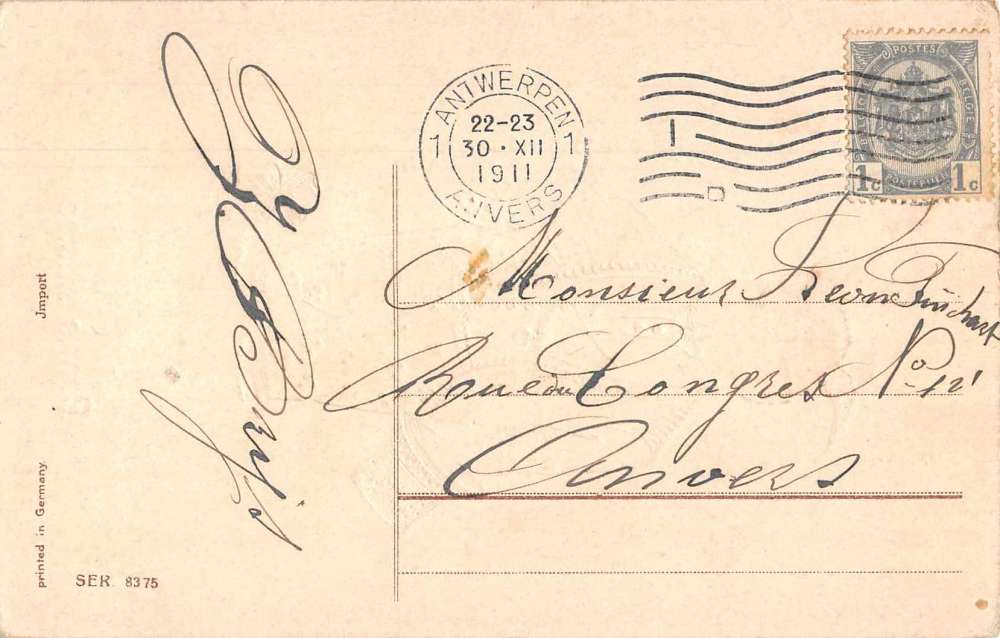 ANTWERPEN
1 22-23 1
30 · XII
1911
ANVERS
POSTES
1c 1c
Monsieur Leon Pinchart
Rue du Congres No 12
Anvers
Jmport
printed in Germany
SER. 8375